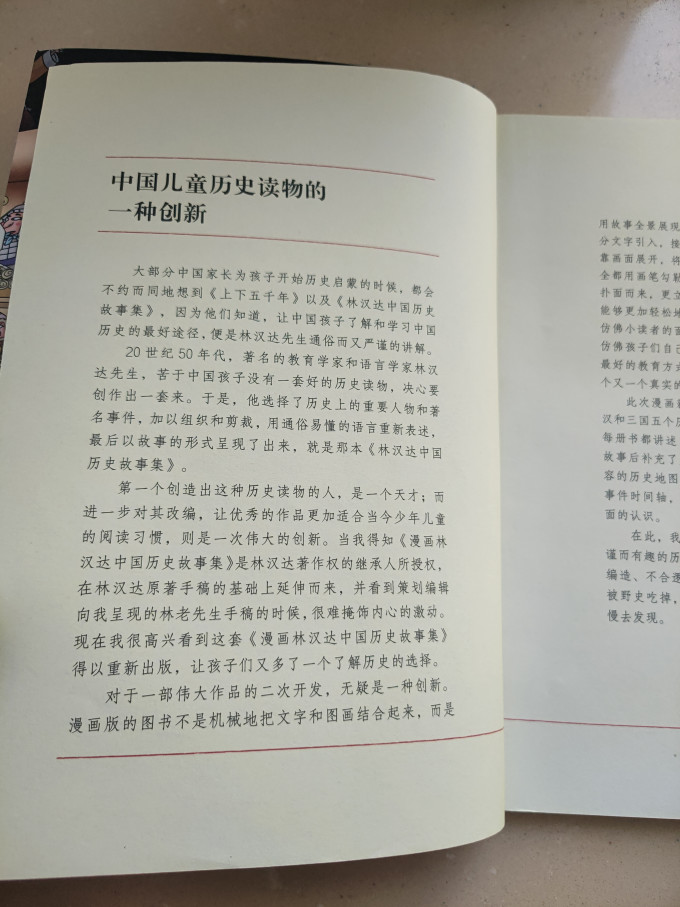 中国儿童历史读物的
一种创新
大部分中国家长为孩子开始历史启蒙的时候，都会
不约而同地想到《上下五千年》以及《林汉达中国历史
故事集》，因为他们知道，让中国孩子了解和学习中国
历史的最好途径，便是林汉达先生通俗而又严谨的讲解。
20世纪50年代，著名的教育学家和语言学家林汉
达先生，苦于中国孩子没有一套好的历史读物，决心要
创作出一套来。于是，他选择了历史上的重要人物和著
名事件，加以组织和剪裁，用通俗易懂的语言重新表述，
最后以故事的形式呈现了出来，就是那本《林汉达中国
历史故事集》。
第一个创造出这种历史读物的人，是一个天才；而
进一步对其改编，让优秀的作品更加适合当今少年儿童
的阅读习惯，则是一次伟大的创新。当我得知《漫画林
汉达中国历史故事集》是林汉达著作权的继承人所授权，
在林汉达原著手稿的基础上延伸而来，并看到策划编辑
向我呈现的林老先生手稿的时候，很难掩饰内心的激动。
现在我很高兴看到这套《漫画林汉达中国历史故事集》
得以重新出版，让孩子们又多了一个了解历史的选择。
对于一部伟大作品的二次开发，无疑是一种创新。
漫画版的图书不是机械地把文字和图画结合起来，而是
用故事全景展现
分文字引入，接
靠画面展开，得
全都用画笔勾勒
扑面而来，更立
能够更加轻松地
仿佛小读者的面
仿佛孩子们自己
最好的教育方式
个又一个真实的
此次漫画
汉和三国五个历
每册书都讲述
故事后补充了
容的历史地图
事件时间轴，
面的认识。
在此，我
谨而有趣的历
编造、不合逻
被野史吃掉，
慢去发现。